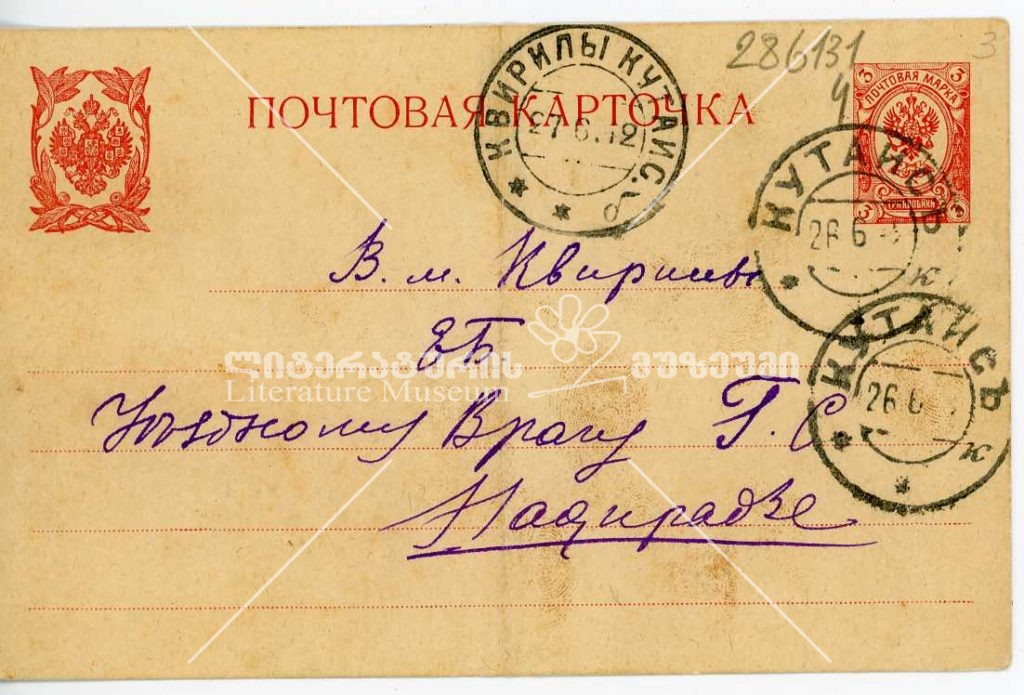 286131
4
3
ПОЧТОВАЯ КАРТОЧКА
3 ПОЧТОВАЯ МАРКА 3
3 ТРИ КОПѢЙКИ 3
КВИРИЛЫ КУТАИС. б
27 6.12
КУТАИСЪ
26 6
ж
КУТАИСЪ
26 6
ж
В. м. Квирилы
ЕБ
Уѣздному Врачу Г. С
Надирадзе
ლიტერატურის მუზეუმი
Literature Museum